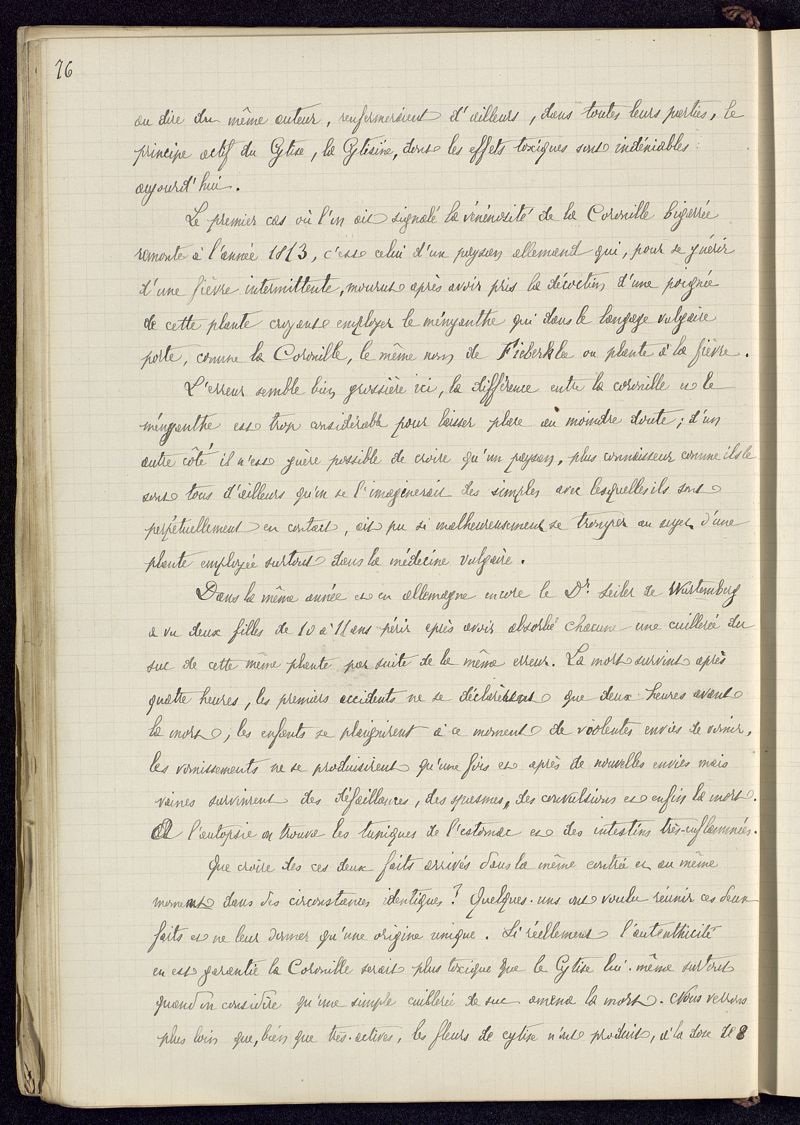 76
au dire du même auteur, renfermeraient d'ailleurs, dans toutes leurs parties, le
principe actif du Cytise, la Cytisine, dont les effets toxiques sont indéniables
aujourd'hui.
Le premier cas où l'on ait signalé la vénénosité de la Coronille bigarrée
remonte à l'année 1813, c'est celui d'un paysan allemand qui, pour se guérir
d'une fièvre intermittente, mourut après avoir pris la décoction d'une poignée
de cette plante croyant employer le ményanthe qui dans le langage vulgaire
porte, comme la Coronille, le même nom de Fieberklee ou plante à la fièvre.
L'erreur semble bien grossière ici, la différence entre la coronille et le
ményanthe est trop considérable pour laisser place au moindre doute; d'un
autre côté il n'est guère possible de croire qu'un paysan, plus connaisseur comme ils le
sont tous d'ailleurs qu'on se l'imaginerait des simples avec lesquelles ils sont
perpétuellement en contact, ait pu si malheureusement se tromper au sujet d'une
plante employée surtout dans la médecine vulgaire.
Dans la même année et en allemagne encore le Dr Seiler de Wurtemberg
a vu deux filles de 10 à 11 ans périr après avoir absorbé chacune une cuillerée du
suc de cette même plante par suite de la même erreur. La mort survint après
quatre heures, les premiers accidents ne se déclarèrent que deux heures avant
la mort, les enfants se plaignirent à ce moment de violentes envies de vomir,
les vomissements ne se produisirent qu'une fois et après de nouvelles envies mais
vaines survinrent des défaillances, des spasmes, des convulsions et enfin la mort.
A l'autopsie on trouve les tuniques de l'estomac et des intestins très-enflammées.
Que croire des ces deux faits arrivés dans la même contrée et au même
moment dans des circonstances identiques? Quelques-uns ont voulu réunir ces deux
faits et ne leur donner qu'une origine unique. Si réellement l'autenthicité
en est garantie la Coronille serait plus toxique que le Cytise lui-même surtout
quand on considère qu'une simple cuillerée de suc amena la mort. Nous verrons
plus loin que, bien que très-actives, les fleurs de cytise n'ont produit, à la dose de 8